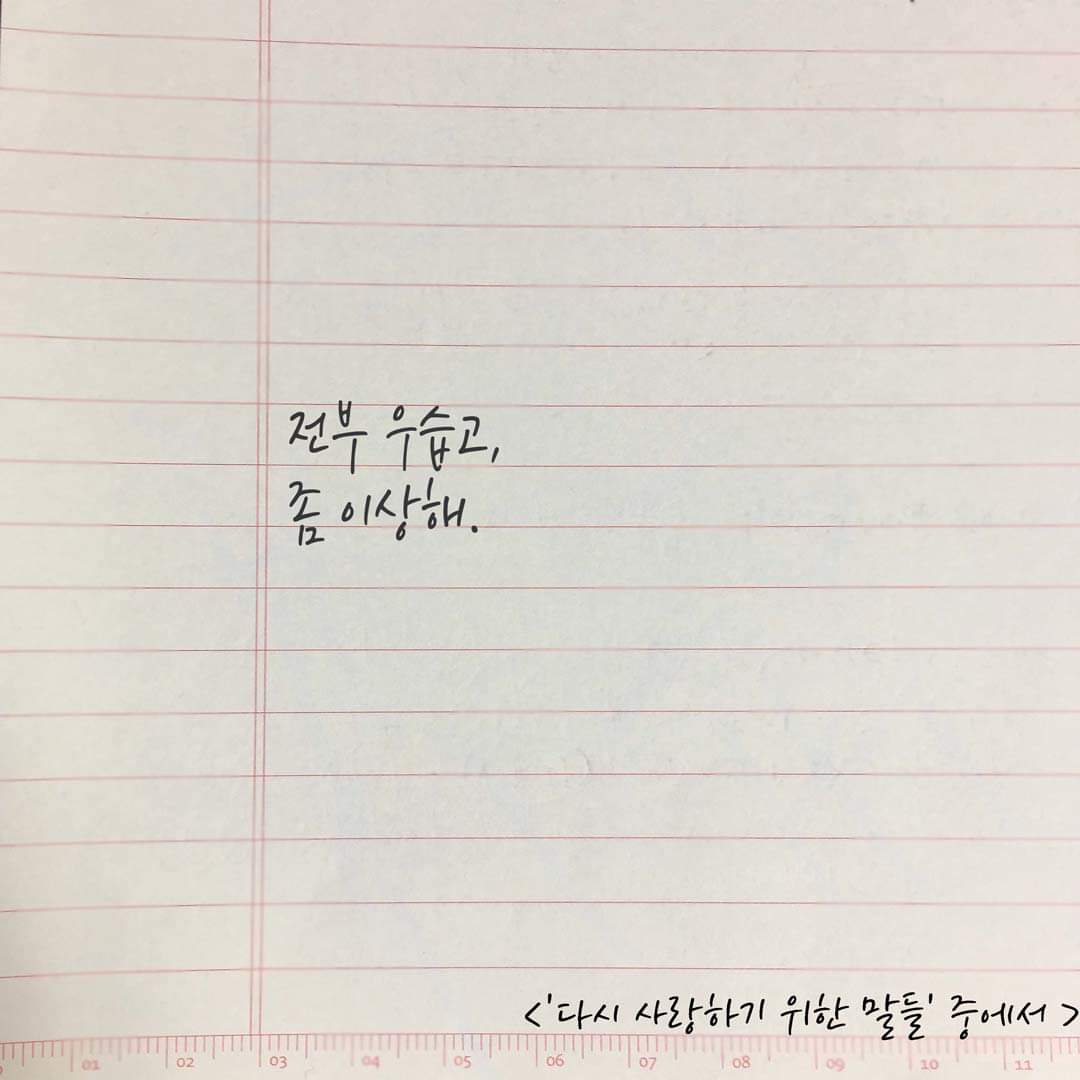 전부 우습고,
좀 이상해.
<'다시 사랑하기 위한 말들' 중에서 >
01 02 03 04 05 06 07 08 09 10 11